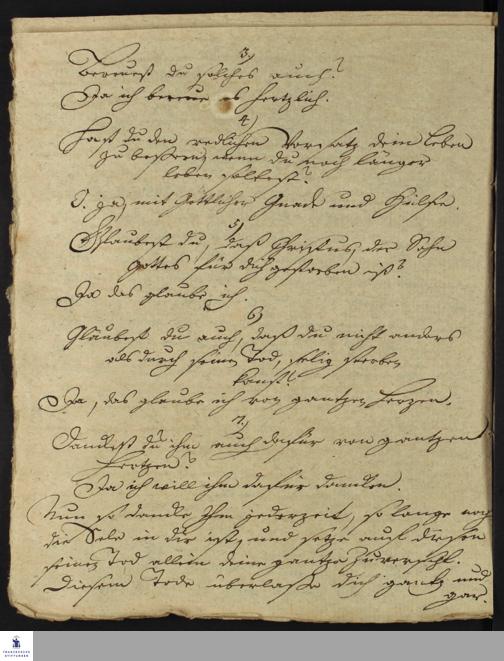 3.)
Bereuest du solches auch?
Ja ich bereue es hertzlich.
4.)
Hast du den redlichen Vorsatz dein Leben
zu bessern, wenn du noch länger
leben soltest?
O. ja, mit Göttlicher Gnade und Hülfe.
5.)
Glaubest du, daß Christus, der Sohn
Gottes für dich gestorben ist?
Ja das glaube ich.
6.)
Glaubest du auch, daß du nicht anders
als durch seinen Tod, selig sterben
kanst?
Ja, das glaube ich von gantzen Herzen.
7.)
Danckest du ihm auch dafür von gantzen
Hertzen?
Ja ich will ihm dafür dancken.
Nun so dancke Ihm jederzeit, so lange noch
die Sele in dir ist, und setze auf diesen
seinen Tod allein deine gantze Zuversicht.
Diesem Tode überlasse dich gantz und
gar.
FRANCKESCHE
STIFTUNGEN